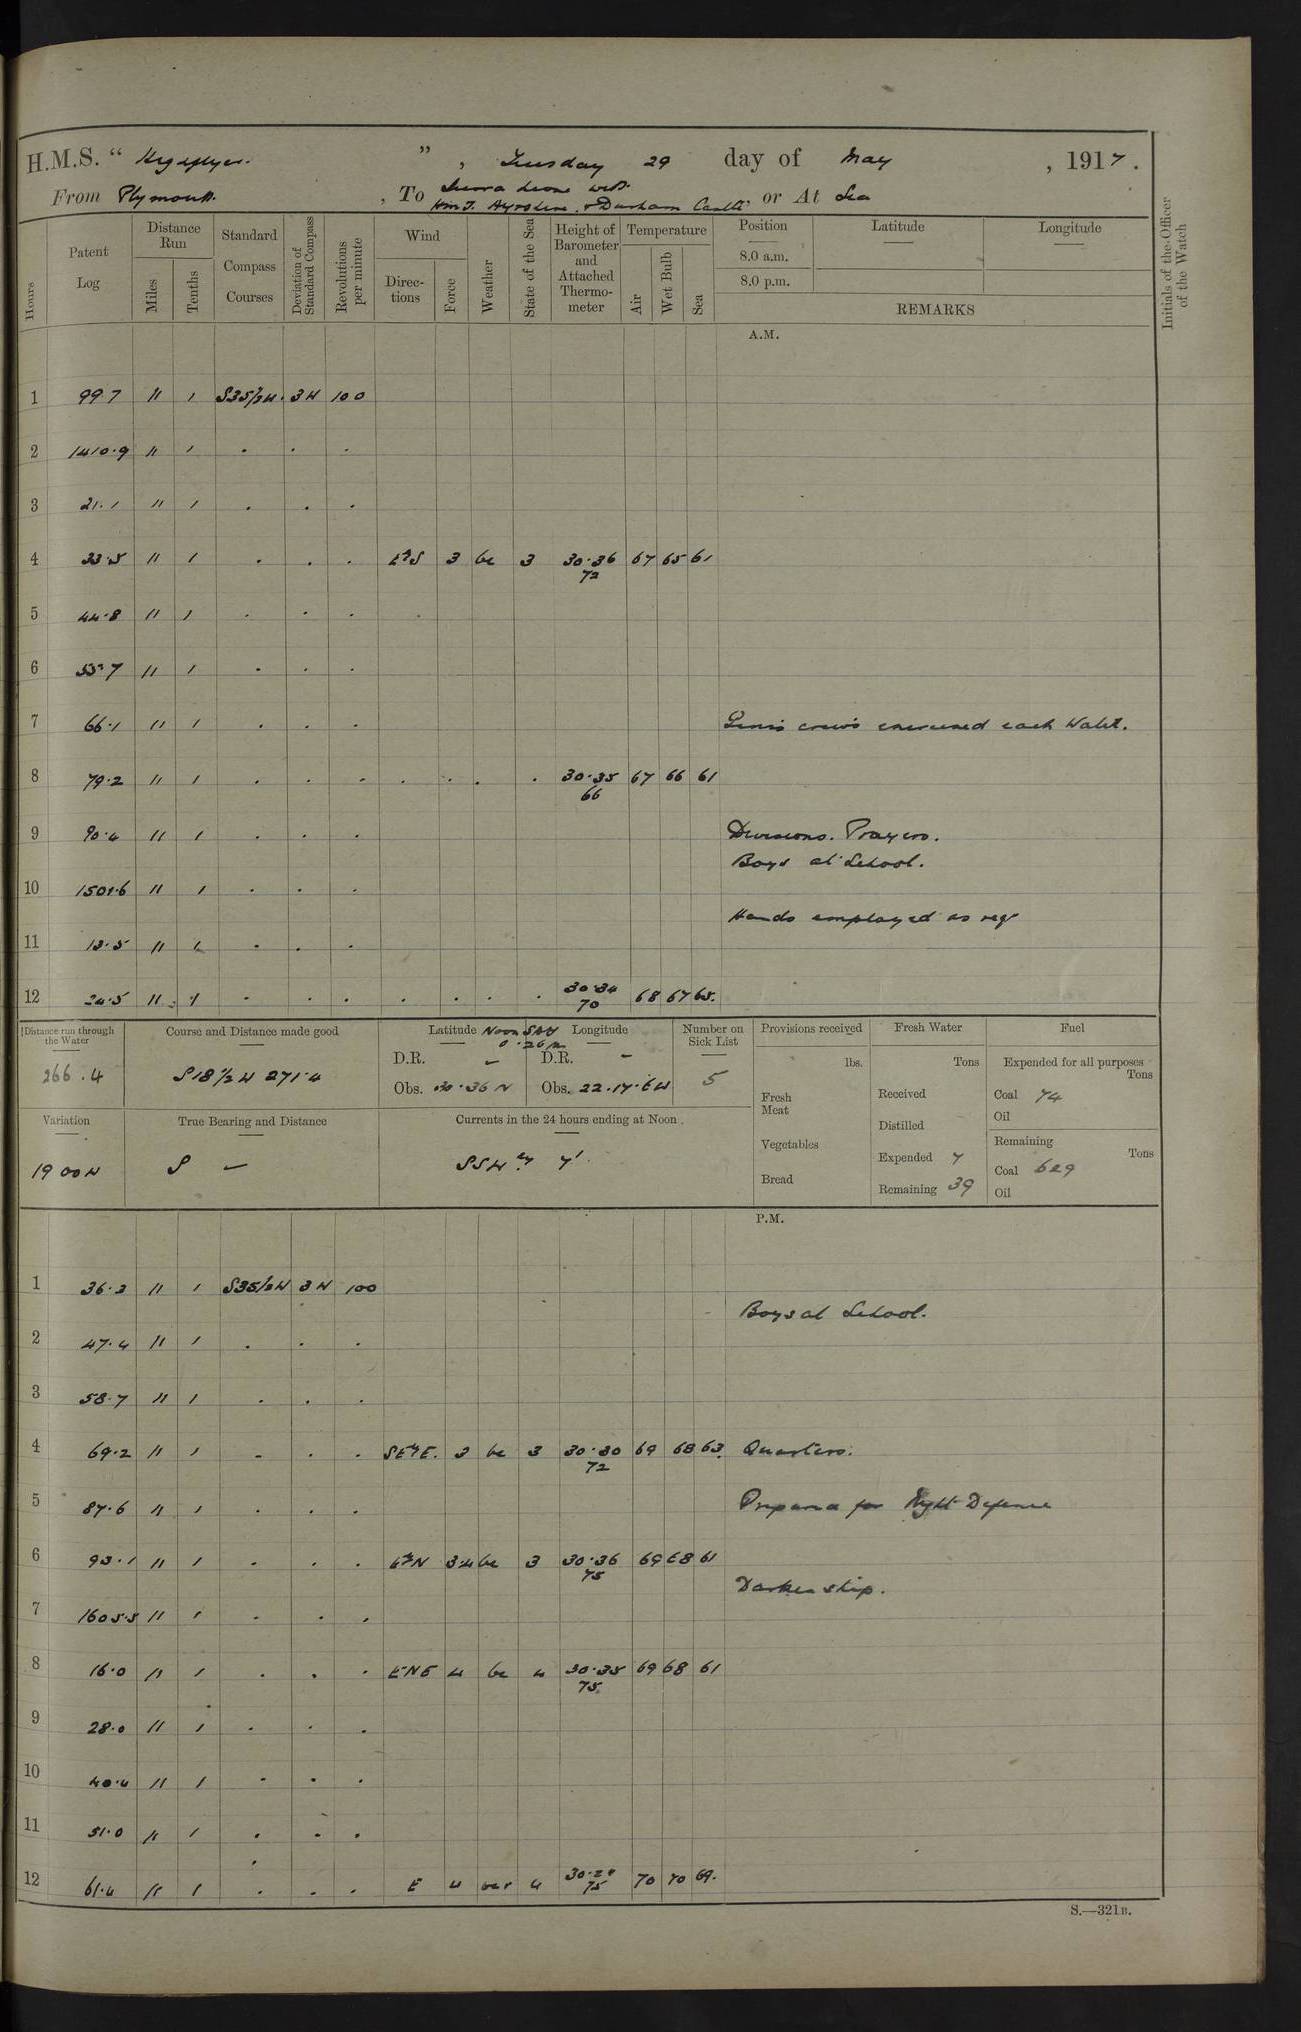 H.M.S. " Highflyer. " , Tuesday 29 day of May , 1917 .
From Plymouth. , To Sierra Leone with H.M.T. Ayrshire & Durham Castle or At Sea
Hours Patent Log Distance Run Miles Tenths Standard Compass Courses Deviation of Standard Compass Revolutions per minute Wind Directions Force Weather State of the Sea Height of Barometer and Attached Thermometer Temperature Air Wet Bulb Sea Position 8.0 a.m. 8.0 p.m. Latitude Longitude REMARKS Initials of the Officer of the Watch
A.M.
1 99.7 11 1 S35½W. 3W 100
2 1410.9 11 1 . . .
3 21.1 11 1 . . .
4 33.5 11 1 . . . EbyS 3 bc 3 30.36 67 65 61
72
5 44.8 11 1 . . . .
6 55.7 11 1 . . .
7 66.1 11 1 . . . Guns crews exercised each Watch.
8 79.2 11 1 . . . . . . . 30.35 67 66 61
66
9 90.4 11 1 . . . Divisions. Prayers.
Boys at School.
10 1501.6 11 1 . . .
Hands employed as req
11 13.5 11 1 . . .
12 24.5 11 1 . . . . . . . 30.34 68 67 65.
70
Distance run through the Water Course and Distance made good Latitude Longitude Number on Sick List Provisions received Fresh Water Fuel
266.4 S18½W 271.4 Noon
D.R. – D.R. –
Obs. 36 N Obs. 22.17.6W 5
lbs. Tons Expended for all purposes Tons
Fresh Meat Received Coal 74
Oil
Variation True Bearing and Distance Currents in the 24 hours ending at Noon.
Distilled
Vegetables Remaining Tons
19 00W S – SSWly 7'
Expended 7 Coal 629
Bread Remaining 39 Oil
P.M.
1 36.3 11 1 S35½W 3W 100
Boys at School.
2 47.4 11 1 . . .
3 58.7 11 1 . . .
4 69.2 11 1 . . . SEbyE. 3 bc 3 30.30 69 68 63. Quarters.
72
5 87.6 11 1 . . . Prepared for Night Defence
6 93.1 11 1 . . . EbyN 3.4 bc 3 30.36 69 68 61
75
Darken ship.
7 1605.5 11 1 . . .
8 16.0 11 1 . . . ENE 4 bc 4 30.35 69 68 61
75.
9 28.0 11 1 . . .
10 40.4 11 1 . . .
11 51.0 11 1 . . .
12 61.4 11 1 . . . E 4 4 70 70 69.
75
S.—321B.